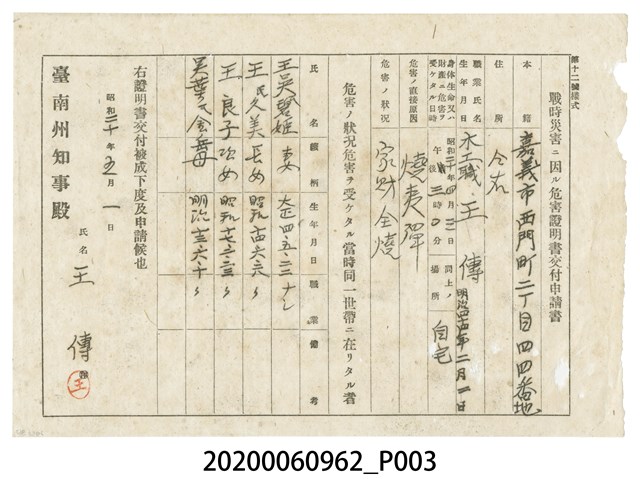 第十二號樣式
戰時災害ニ因ル危害證明書交付申請書
本籍 嘉義市西門町二丁目四四番地
住所 仝右
職業氏名 木工職 王傳
生年月日 明治四十四年二月一日
身体生命又ハ財產ニ危害ヲ受ケタル日時 昭和二十年四月三日 午後三時〇分
同上ノ場所 自宅
危害ノ直接原因 燒夷彈
危害ノ狀況 家財全燒
危害ノ狀況危害ヲ受ケタル當時同一世帶ニ在リタル者
氏名 續柄 生年月日 職業 備考
王吳碧姬 妻 大正四、五、二三 ナシ
王氏久美 長女 昭和
王良子 次女 昭和
吳葉氏 母 明治
右證明書交付被成下度及申請候也
昭和二十年五月一日
氏名 王傳
王
臺南州知事殿
20200060962_P003